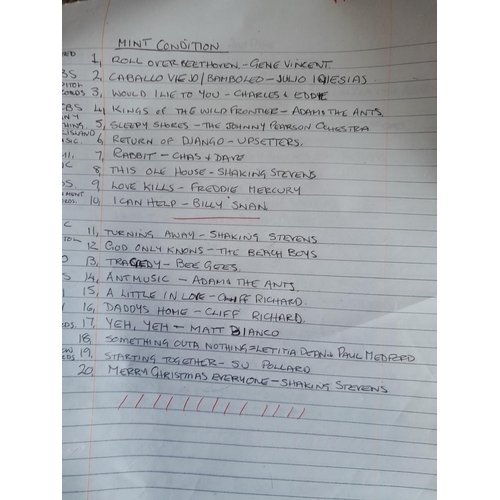 MINT CONDITION
1, ROLL OVER BEETHOVEN. - GENE VINCENT
BS 2, CABALLO VIEJO/BAMBOLEO - JULIO IGLESIAS
3, WOULD I LIE TO YOU - CHARLES & EDDIE
CBS 4, KINGS OF THE WILD FRONTIER - ADAM & THE ANTS.
5, SLEEPY SHORES - THE JOHNNY PEARSON OCHESTRA
ISLAND 6, RETURN OF DJANGO - UPSETTERS.
7, RABBIT - CHAS & DAVE
8, THIS OLE HOUSE - SHAKING STEVENS
9, LOVE KILLS - FREDDIE MERCURY
10, I CAN HELP - BILLY SWAN
11, TURNING AWAY - SHAKING STEVENS
12, GOD ONLY KNOWS - THE BEACH BOYS
13, TRAGEDY - BEE GEES.
14, ANTMUSIC - ADAM & THE ANTS.
15, A LITTLE IN LOVE - CLIFF RICHARD.
16, DADDYS HOME - CLIFF RICHARD.
17, YEH, YEH - MATT BIANCO
18, SOMETHING OUTA NOTHING = LETITIA DEAN & PAUL MEDFORD
19, STARTING TOGETHER - SU POLLARD
20, MERRY CHRISTMAS EVERYONE - SHAKING STEVENS